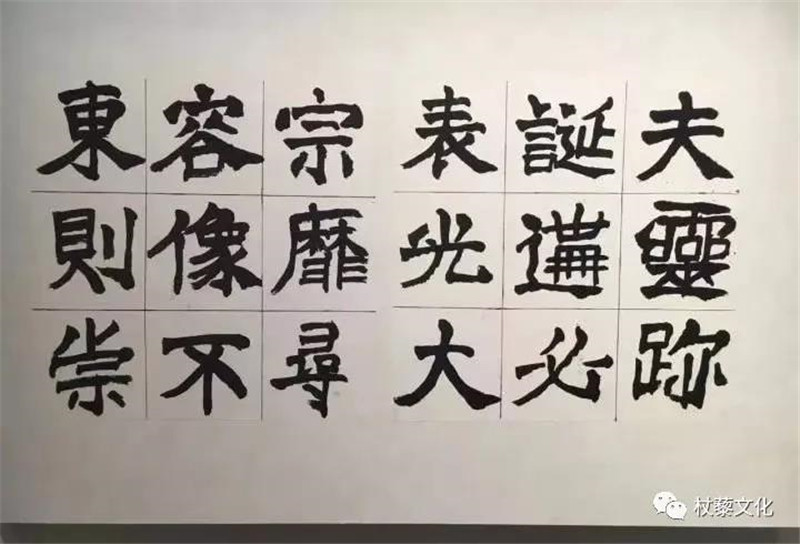 夫靈跡
誕遘必
表光大
宗靡尋
容像不
東則崇
杖藜文化